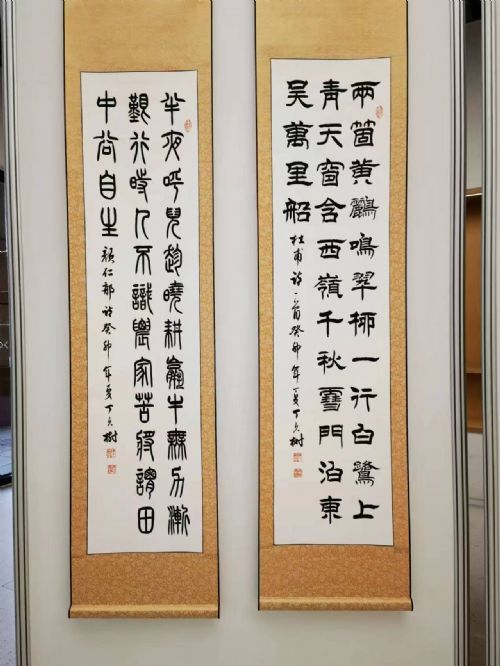 兩箇黃鸝鳴翠柳一行白鷺上
青天窗含西嶺千秋雪門泊東
吳萬里船
杜甫詩一首癸卯年夏丁樹
半夜呼兒趁曉耕羸牛無力漸
艱行時人不識農家苦將謂田
中谷自生
顏仁郁詩癸卯年夏丁樹